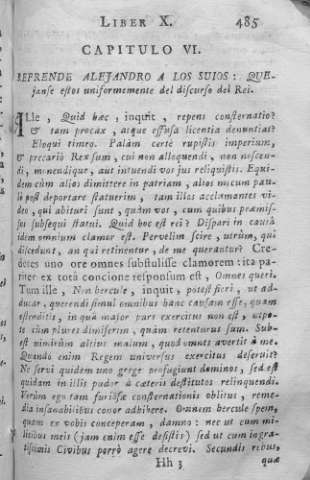 LIBER X. 485
CAPITULO VI.
REPRENDE ALEJANDRO A LOS SUIOS: QUE-
janse estos uniformemente del discurso del Rei.
ILle, Quid hæc, inquit, repens consternatio?
& tam procax, atque effusa licentia denuntiat?
Eloqui timeo. Palàm certè rupistis imperium,
& precariò Rex sum, cui non alloquendi, non noscen-
di, monendique, aut intuendi vos jus reliquistis. Equi-
dem cùm alios dimittere in patriam, alios mecum pau-
lò post deportare statuerim, tam illos acclamantes vi-
deo, qui abituri sunt, quàm vos, cum quibus præmis-
sos subsequi statui. Quid hoc est rei? Dispari in causâ
idem omnium clamor est. Pervelim scire, utrùm, qui
discedunt, an qui retinentur, de me querantur? Cre-
deres uno ore omnes sustulisse clamorem: ita pa-
riter ex totâ concione responsum est, Omnes queri.
Tum ille, Non hercule, inquit, potest fieri, ut ad-
ducar, querendi simul omnibus hanc causam esse, quam
ostenditis, in quâ major pars exercitûs non est, utpo-
te cùm plures dimiserim, quàm retenturus sum. Sub-
est nimirùm altius malum, quod omnes avertit à me.
Quando enim Regem universus exercitus deseruit?
Ne servi quidem uno grege profugiunt dominos, sed est
quidam in illis pudor à cæteris destitutos relinquendi.
Verùm ego tam furiosæ consternationis oblitus, reme-
dia insanabilibus conor adhibere. Omnem hercule spem,
quam ex vobis conceperam, damno: nec ut cum mi-
litibus meis (jam enim esse desistis) sed ut cum ingra-
tissimis Civibus porrò agere decrevi. Secundis rebus,
Hh 3 quæ